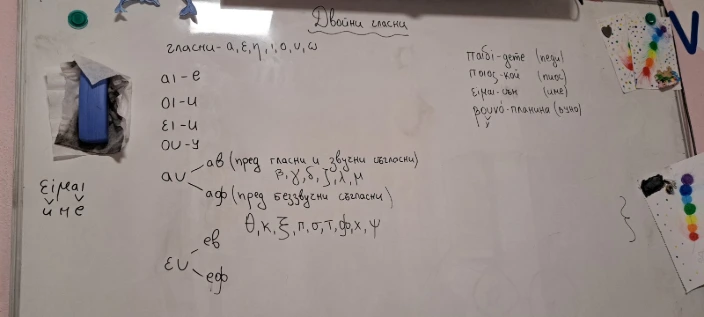 Двойни гласни
гласни - α, ε, η, ι, ο, υ, ω
αι - е
οι - и
ει - и
ου - у
αυ
ав (пред гласни и звучни съгласни)
β, γ, δ, ζ, λ, μ
аф (пред беззвучни съгласни)
θ, κ, ξ, π, σ, τ, φ, χ, ψ
ευ
ев
еф
είμαι
име
παιδί - дете (педи)
ποιος - кой (пиос)
είμαι - съм (име)
βουνό - планина (вуно)
у